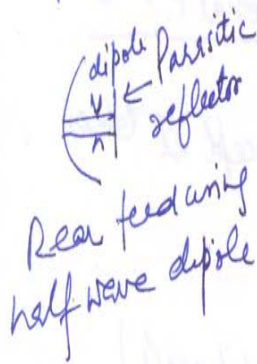 dipole
Parasitic
reflector
Rear feed using
half wave dipole